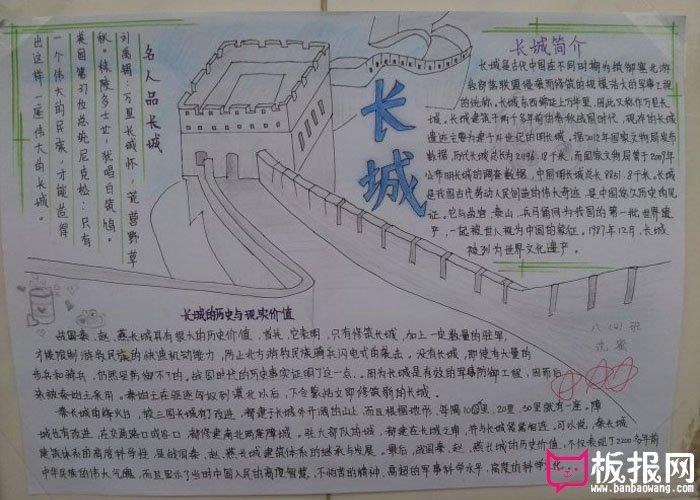 名人品长城
刘禹锡：万里长城坏，荒营野草
秋。秣陵多士女，犹唱白符鸠。
美国第37位总统尼克松：只有
一个伟大的民族，才能造得
出这样一座伟大的长城。
长城
长城简介
长城是古代中国在不同时期为抵御塞北游
牧部落联盟侵袭而修筑的规模浩大的军事工程
的统称。长城东西绵延上万里，因此又称作万里长
城。长城建筑于两千多年前的春秋战国时代，现存的长城
遗迹主要为建于14世纪的明长城。据2012年国家文物局发布
数据，历代长城总长为21196.18千米，而国家文物局曾于2009年
公布明长城的调查数据，中国明长城总长8851.8千米。长城
是我国古代劳动人民创造的伟大奇迹，是中国悠久历史的见
证。它与故宫、泰山、兵马俑同为我国的第一批世界遗
产，一起被世人视为中国的象征。1987年12月，长城
被列为世界文化遗产。
长城的历史与现实价值
战国秦、赵、燕长城具有很大的历史价值，首先，它表明，只有修筑长城，加上一定数量的驻军，
才能限制游牧民族的快速机动能力，阻止北方游牧民族骑兵闪电式的袭击。没有长城，即使有大量的
步兵和骑兵，仍然是防御不了的。战国时代的历史事实证明了这一点。因为长城是有效的军事防御工程，因而后
来被秦始皇采用。秦始皇在驱逐匈奴到漠北以后，下令蒙恬立即修筑新的长城。
秦长城的烽火台，较三国长城有了改进，都建于长城外开阔的山上，而且根据地形，每隔10里，20里，30里就有一座。障
城也有改进，在交通路口或谷口，都修建南北两座障城。驻大部队的城，都建在长城之南，并与长城紧紧相连。可以说，秦长城
建筑体系的高度科学性，是战国秦、赵、燕长城建筑体系的继承与发展。最后，战国秦、赵、燕长城的历史价值，不仅表现了2200多年前
中华民族的伟大气魄，而且显示了当时中国人民的高度智慧、不怕苦的精神、高超的军事科学水平、高度的科学文化...
八（4）班
板报网
www.banbaowang.com